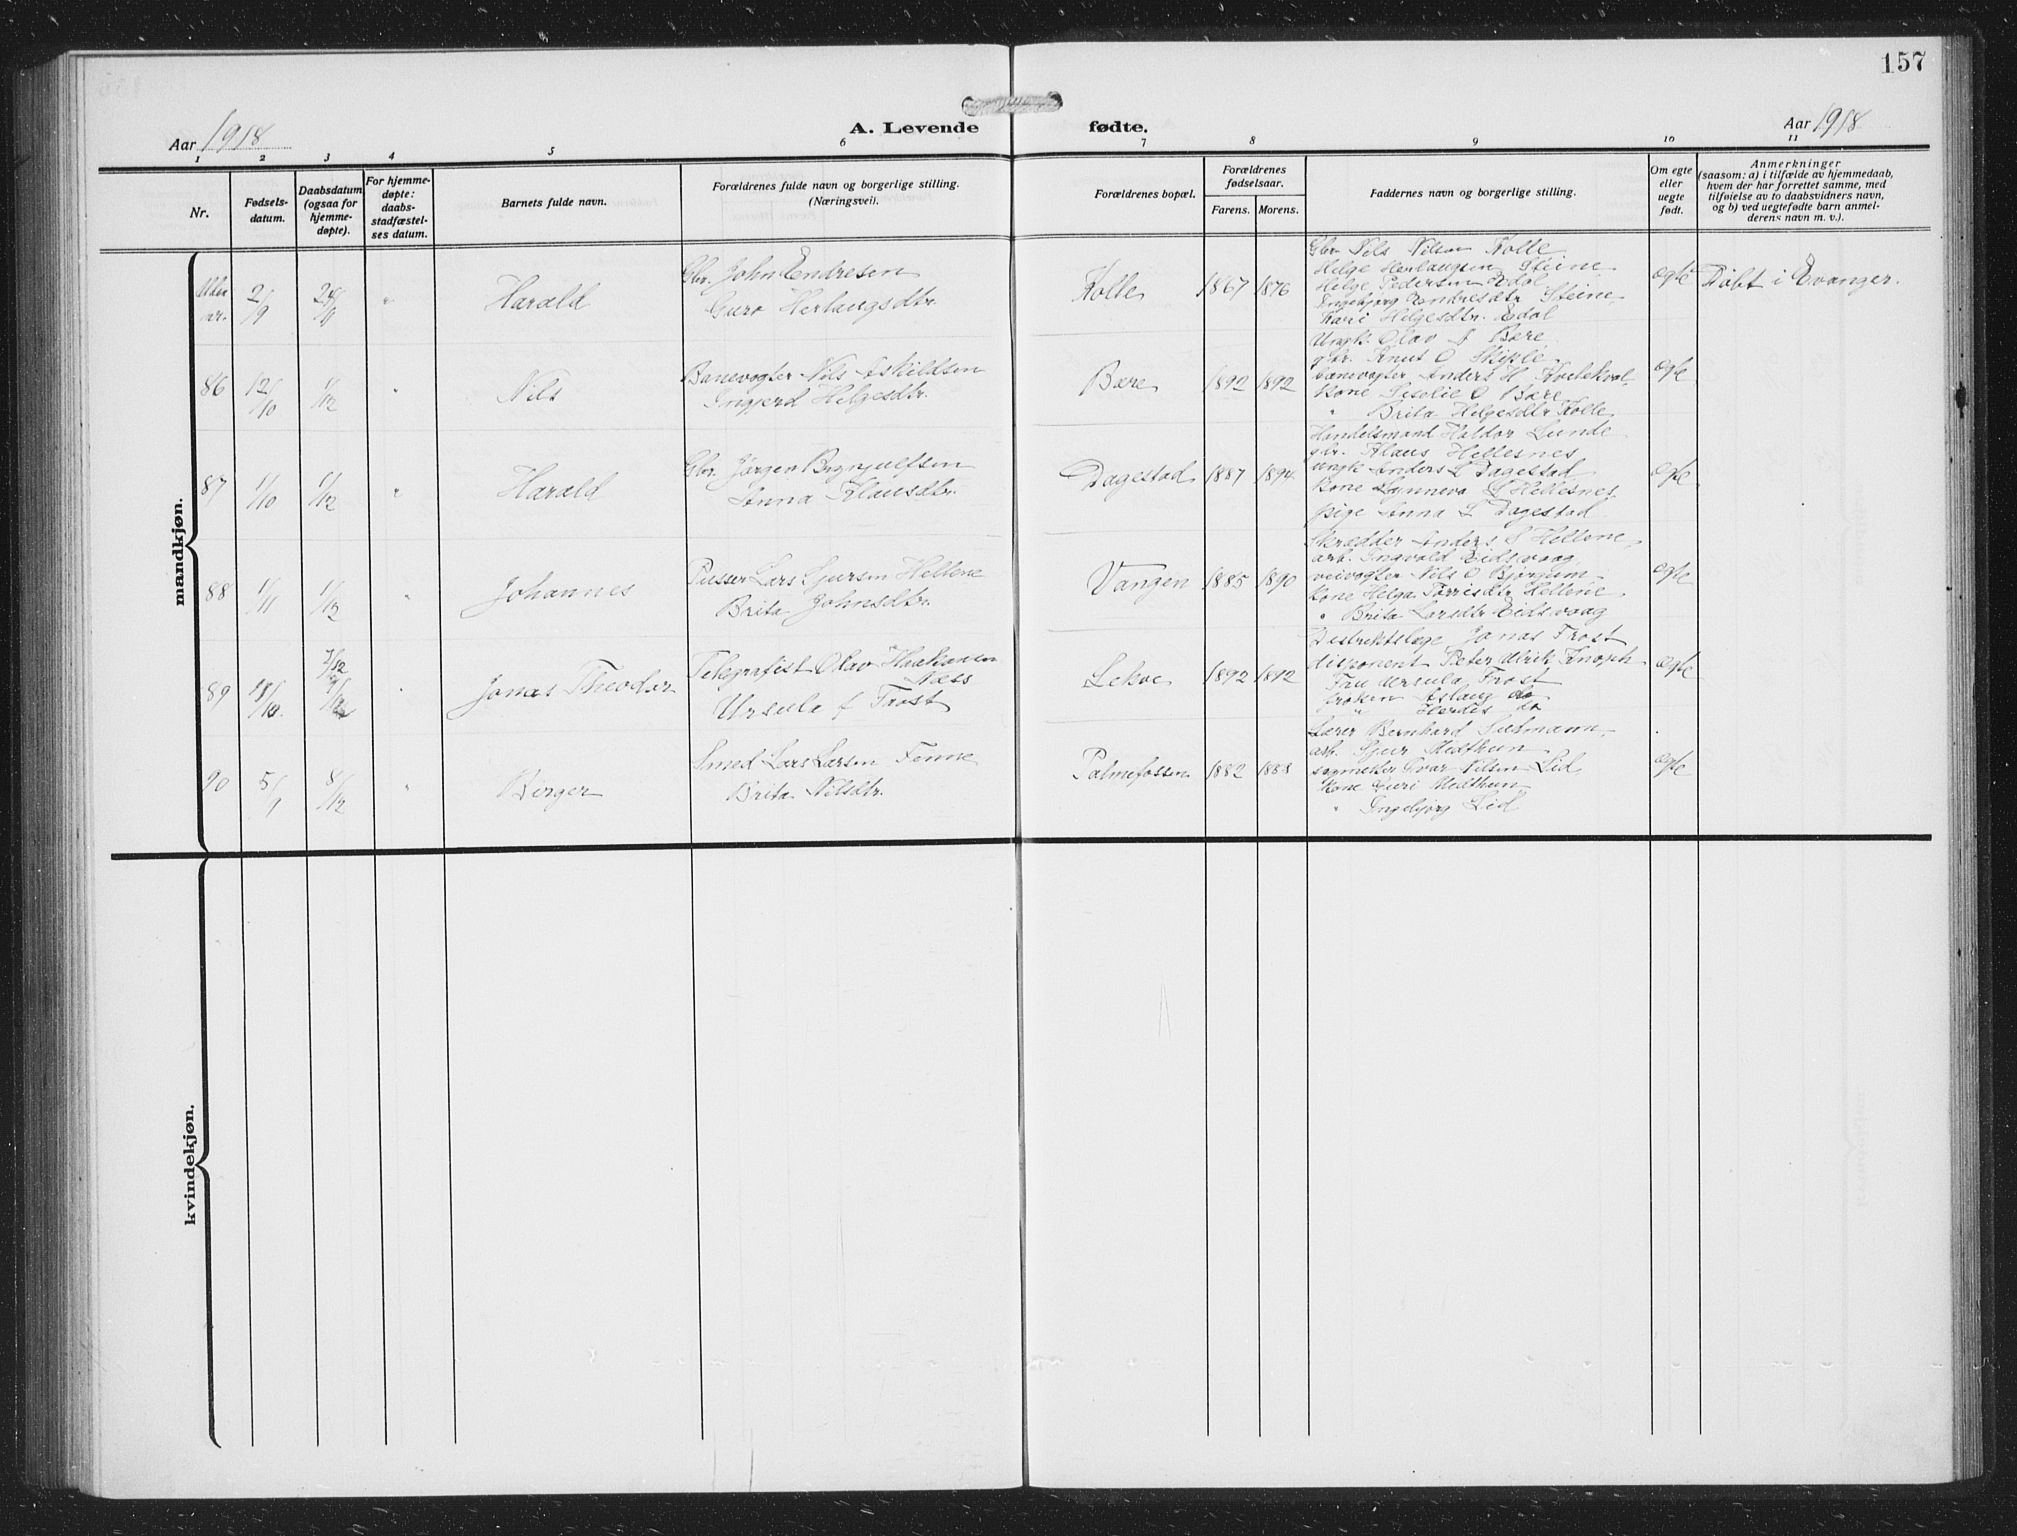 157
Aar 1918
A. Levende fødte.
Aar 1918
1 2 3 4 5 6 7 8 9 10 11
Nr.
Fødsels-
datum.
Daabsdatum
(ogsaa for
hjemme-
døpte).
For hjemme-
døpte:
daabs-
stadfæstel-
ses datum.
Barnets fulde navn.
Forældrenes fulde navn og borgerlige stilling.
(Næringsvei).
Forældrenes bopæl.
Forældrenes
fødselsaar.
Farens. Morens.
Faddernes navn og borgerlige stilling.
Om egte
eller
uegte
født.
Anmerkninger
(saasom: a) i tilfælde av hjemmedaab,
hvem der har forrettet samme, med
tilføielse av to daabsvidners navn,
og b) ved uegtefødte barn anmel-
derens navn m. v.).
mandkjøn.
Uten
nr.
2/9
24/11
"
Harald
Gbr. John Endresen
Guro Herlaugsdtr.
Kolle
1867
1876
Gbr. Nils Nilsen Kolle
Helge Herlaugsen Steine
Helge Pedersen Edal
Ingebjørg Endresdtr. Steine
Kari Helgesdtr. Edal
egte
Døbt i Evanger.
86
12/10
1/12
"
Nils
Banevogter Nils Askildsen
Ingjerd Helgesdtr.
Bære
1892
1892
Ungk. Olav J Bære
gbr. Knut O Skiple
banevogter Anders H Kvitekval
Kone Sisilie O Bære
" Brita Helgesdtr Kolle
egte
87
1/10
1/12
"
Harald
Gbr. Jørgen Brynjulfsen
Anna Klausdtr.
Dagestad
1887
1894
Handelsmand Haldor Lunde
gbr. Klaus Hellesnes
ungk Anders L Dagestad
Kone Synneva S Hellesnes
Pige Anna L Dagestad
egte
88
1/11
1/12
"
Johannes
Pusser Lars Sjursen Hellene
Brita Johnsdtr.
Vangen
1885
1890
Skrædder Anders S Hellene
arb. Ingvald Eidsvaag
veivogter Nils O Bjørgum
Kone Helga Torrisdtr Hellene
" Brita Larsdtr Eidsvaag
egte
89
"
Jonas Theodor
Telegrafist Olav Haakonsen
Næss
Ursula f Frost
Lekve
1892
1892
Distriktslæge Jonas Frost
disponent Peter Ulrik Knoph
Fru Ursula Frost
frøken Aslaug do
" Herdis do
egte
90
5/9
8/12
"
Birger
Smed Lars Larsen Finne
Brita Nilsdtr.
Palmefossen
1882
1883
Lærer Bernhard Salmann
arb. Sjur Midthun
sagmester Ivar Nilsen Lid
Kone Guri Midthun
" Ingebjørg Lid
egte
kvindekjøn.